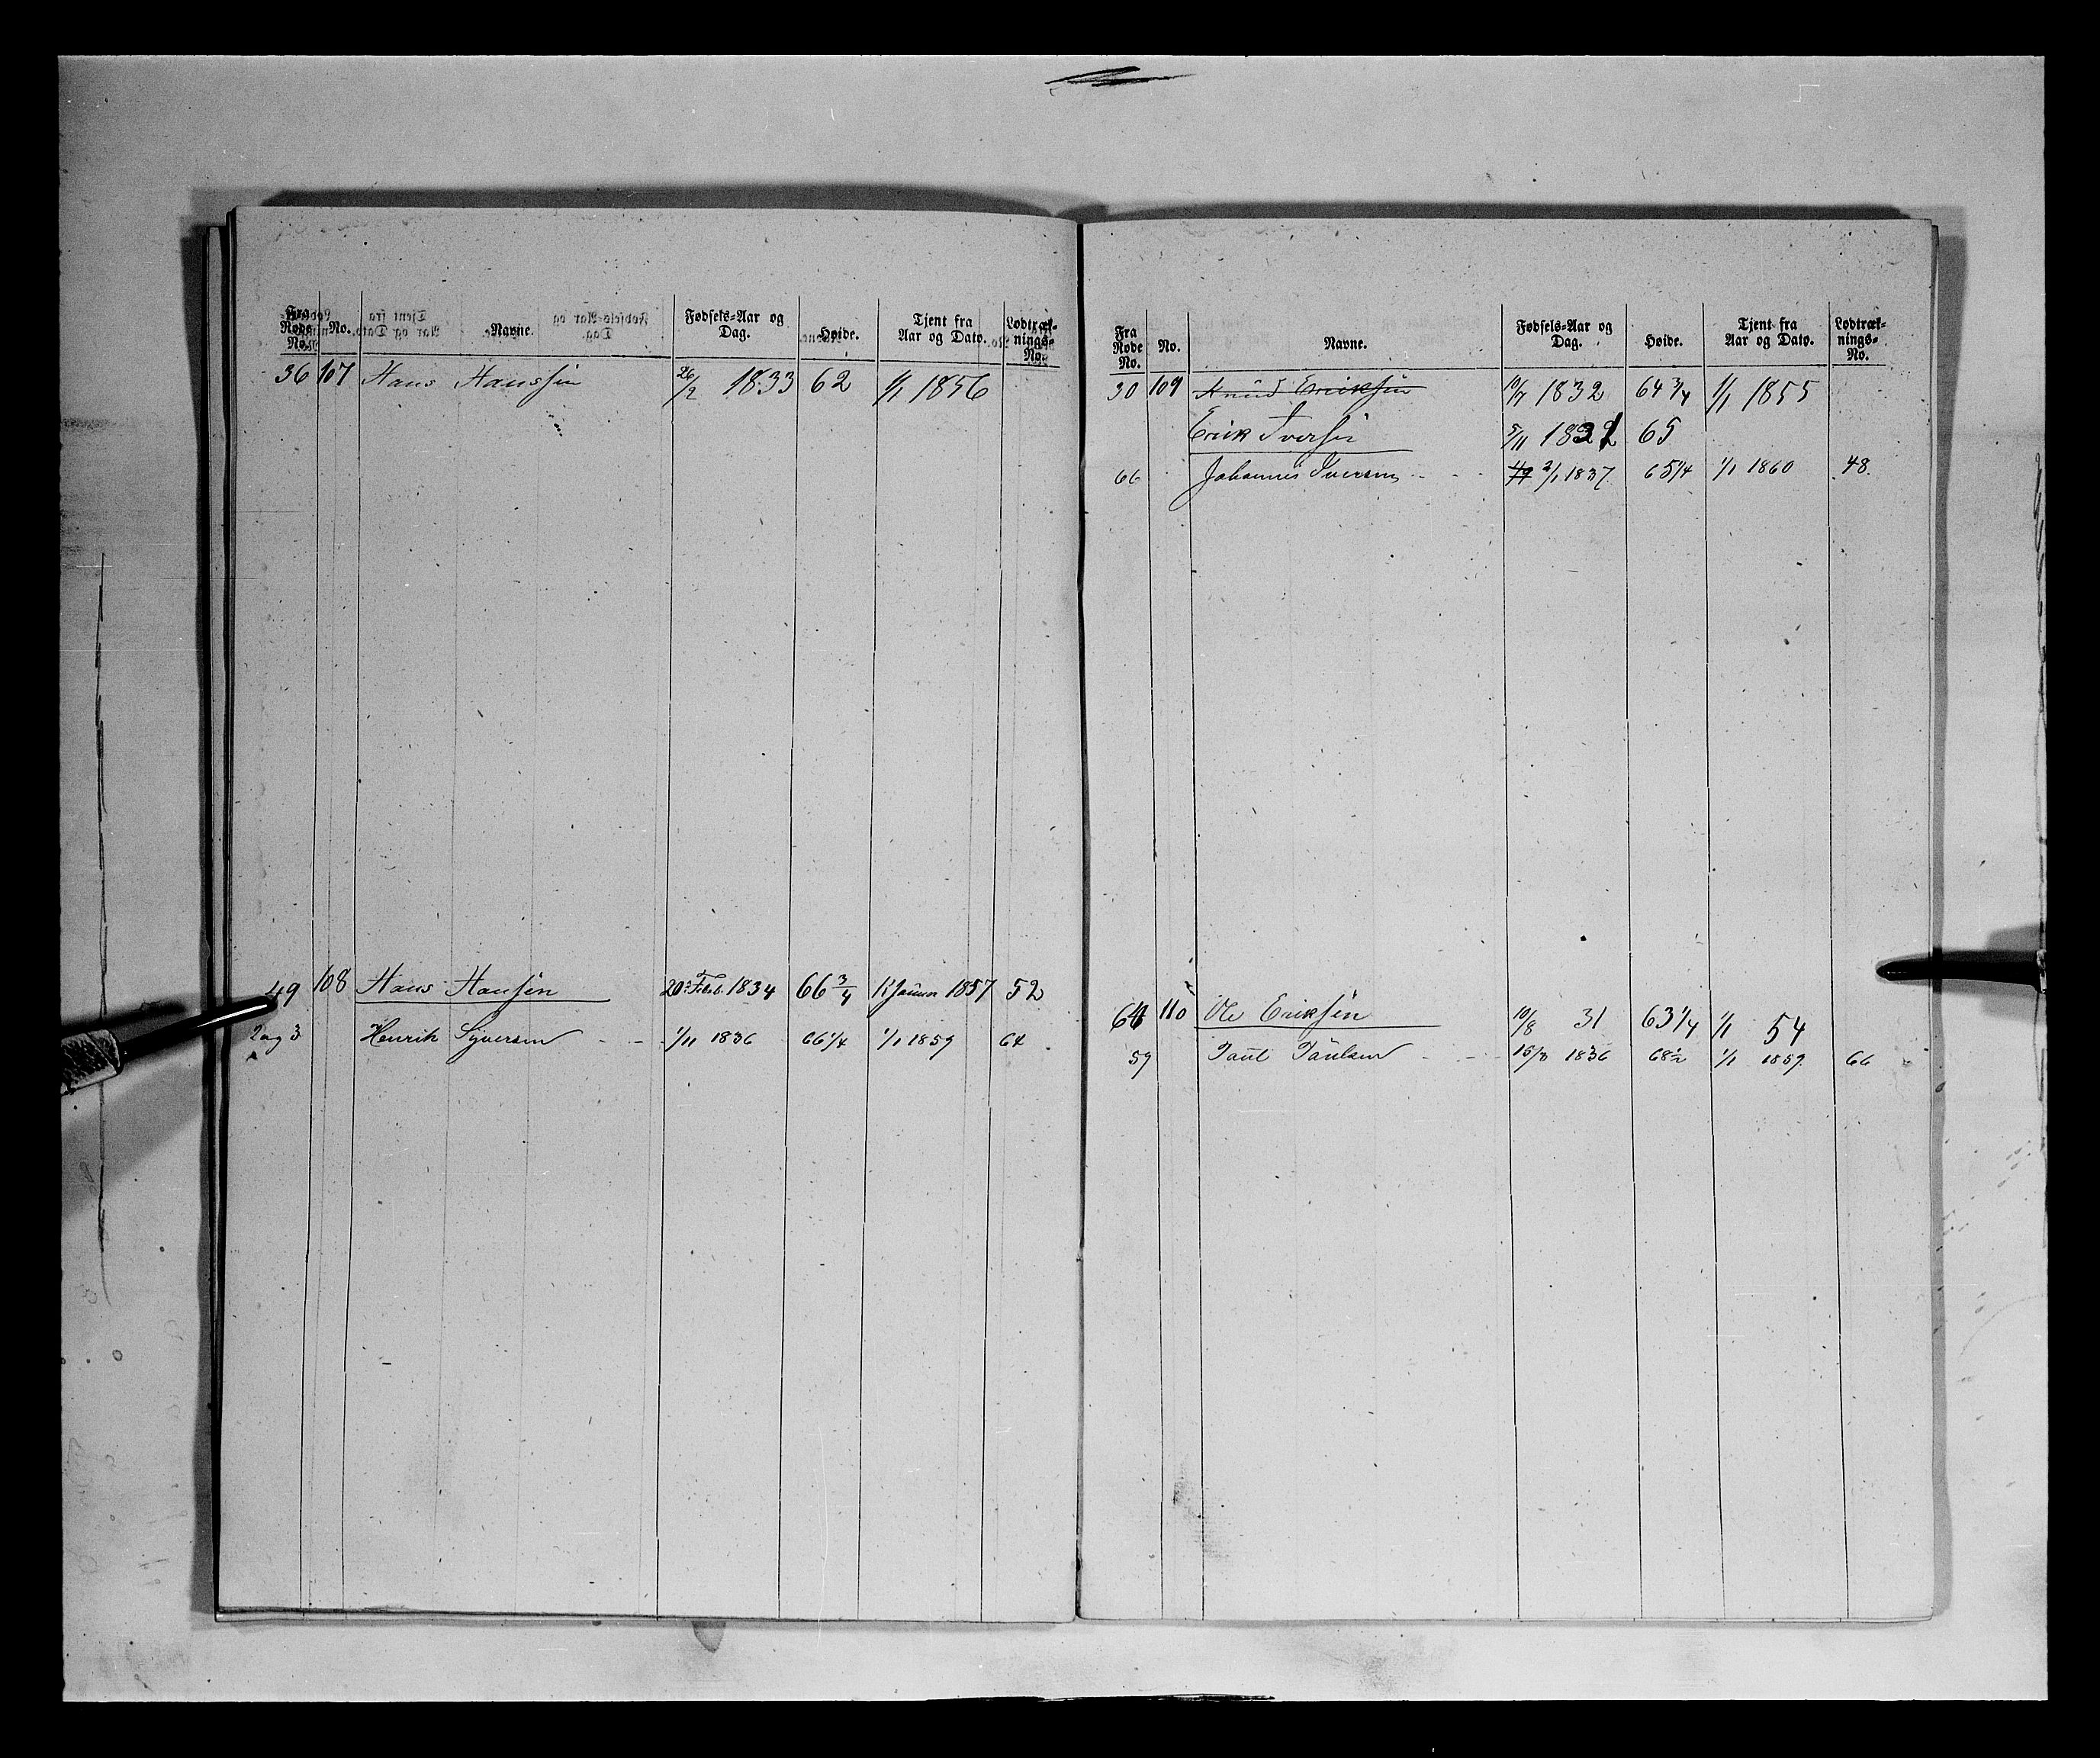 Fra Rode No. No. Navne. Fødsels-Aar og Dag. Høide. Tjent fra Aar og Dato. Lodtræk-nings-No.
36 107 Hans Hanssen 26/2 1833 62 1/1 1856
49 108 Hans Hansen 20 Feb. 1834 66 3/4 1 Januar 1857 52
2 og 3 Henrik Syversen - - 1/11 1836 66 1/4 1/1 1859 64
Fra Rode No. No. Navne. Fødsels-Aar og Dag. Høide. Tjent fra Aar og Dato. Lodtræk-nings-No.
30 109 Knud Eriksen 10/7 1832 64 3/4 1/1 1855
Erik Iversen 5/11 65
66 Johannes Iversen - - 2/1 1837 65 1/4 1/1 1860 48.
64 110 Ole Eriksen 10/8 31 63 1/4 1/1 54
59 Paul Paulsen - - 15/8 1836 68 1/2 1/1 1859 66